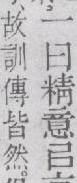 一曰精意㠯
故訓傳皆然。